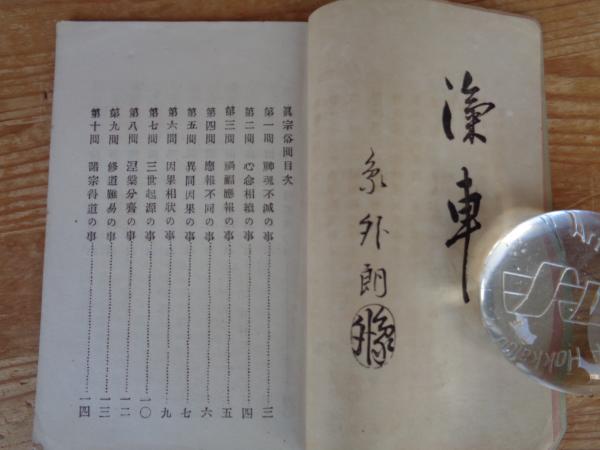 濠車
象外朗
眞宗俗問目次
第一問 神魂不滅の事 三
第二問 心念相續の事 四
第三問 禍福應報の事 五
第四問 應報不同の事 六
第五問 異同因果の事 七
第六問 因果相狀の事 九
第七問 三世起源の事 一〇
第八問 涅槃分齊の事 一二
第九問 修道難易の事 一三
第十問 諸宗得道の事 一四
Hokkaido